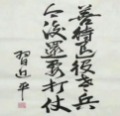 善待退役老兵
今后还要打仗
習近平